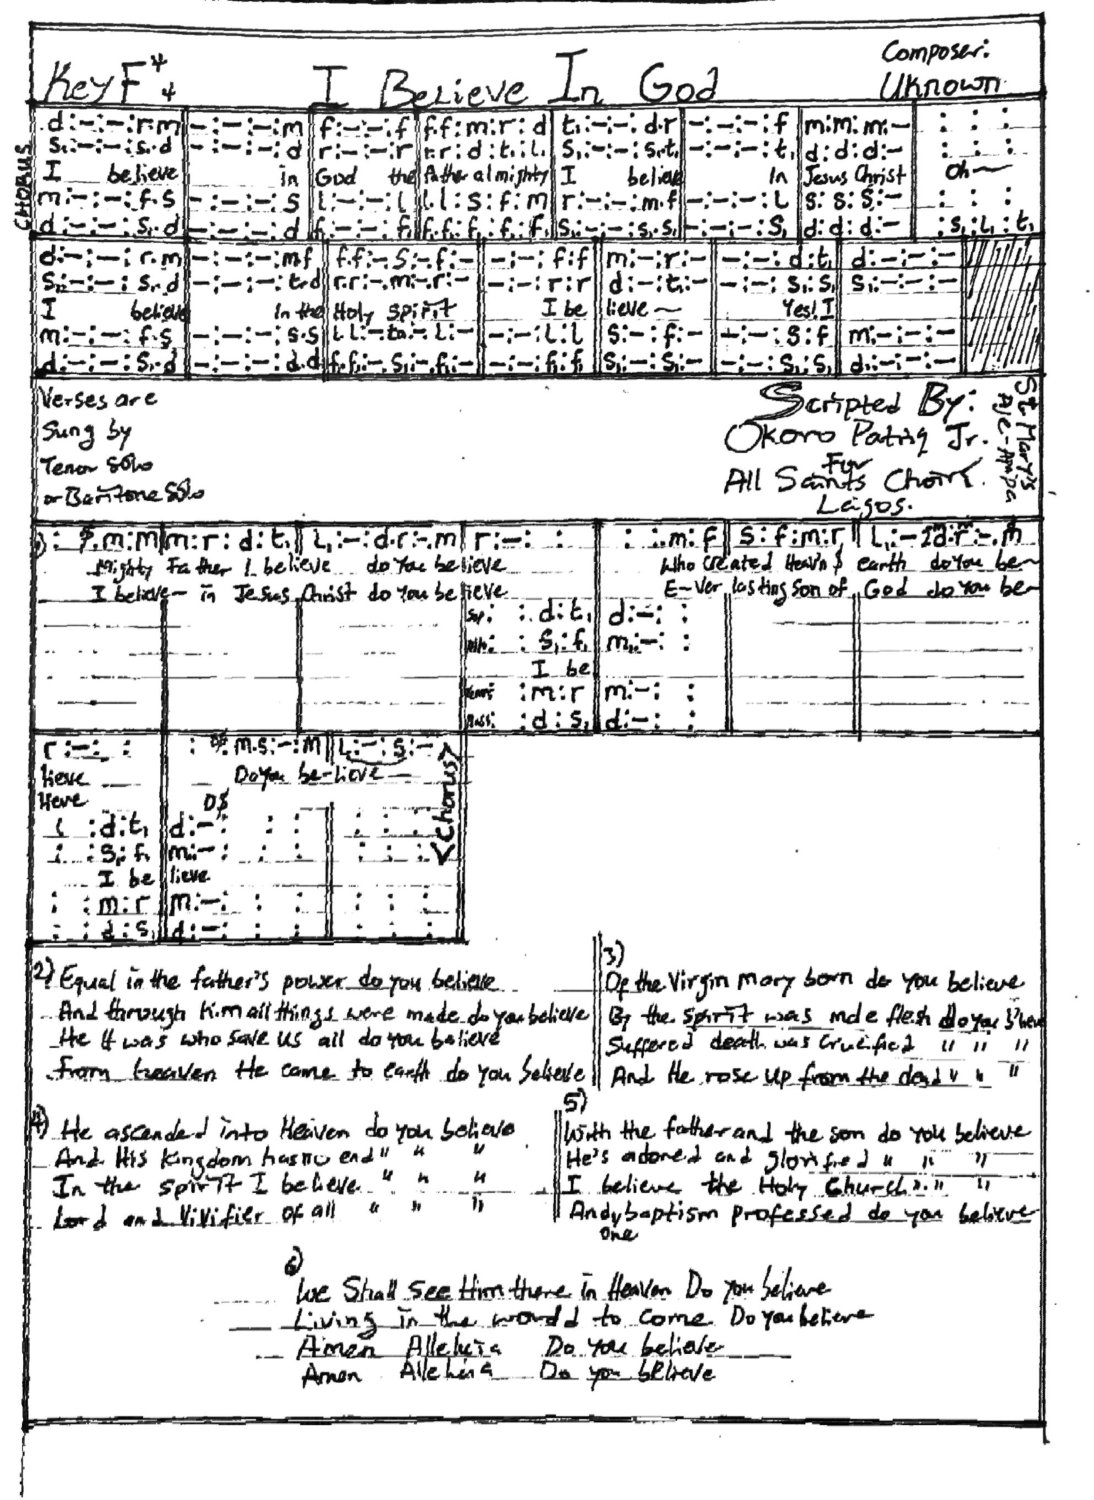 Key F 4/4 I Believe In God Composer: Uknown
CHORUS
d:-:-:r.m|-:-:-:m|f:-:-:f|f.f:m:r:d|t₁:-:-:d.r|-:-:-:f|m:m:m:-| : : :
s₁:-:-:s₁.d|-:-:-:d|r:-:-:r|r.r:d:t₁:l₁|s₁:-:-:s₁.t₁|-:-:-:t₁|d:d:d:-| : : :
I believe in God the father almighty I believe in Jesus Christ oh
m:-:-:f.s|-:-:-:s|l:-:-:l|l.l:s:f:m|r:-:-:m.f|-:-:-:l|s:s:s:-| : : :
d:-:-:s₁.d|-:-:-:d|f₁:-:-:f₁|f₁.f₁:f₁:f₁:f₁|s₁:-:-:s₁.s₁|-:-:-:s₁|d:d:d:-| :s₁:l₁:t₁
d:-:-:r.m|-:-:-:m.f|f.f:-.s:-.f:-|-:-:f:f|m:-:r:-|-:-:d:t₁|d:-:-:-
s₁:-:-:s₁.d|-:-:-:t₁.d|r.r:-.m:-.r:-|-:-:r:r|d:-:t₁:-|-:-:s₁:s₁|s₁:-:-:-
I believe in the Holy spirit I be lieve ~ Yes! I
m:-:-:f.s|-:-:-:s.s|l.l:-.ta:-.l:-|-:-:l:l|s:-:f:-|-:-:s:f|m:-:-:-
d:-:-:s₁.d|-:-:-:d.d|f₁.f₁:-.s₁:-.f₁:-|-:-:f₁:f₁|s₁:-:s₁:-|-:-:s₁:s₁|d:-:-:-
Verses are
Sung by
Tenor Solo
or Baritone Solo
Scripted By:
Okoro Patriq Jr.
For
All Saints Choir.
Lagos.
St. Mary's
1) : .m:m|m:r:d:t₁|l₁:-:d.r:-.m|r:-: : : :.m:f|s:f:m:r|l₁:-:d.r:-.m
Mighty Father I believe do you believe Who created Heav'n $ earth do you be~
I believe~ in Jesus Christ do you believe E-Ver lasting son of God do you be~
Sop: :d:t₁|d:-: :
Alto: :s₁:f₁|m₁:-: :
I be
Tenor: :m:r|m:-: :
Bass: :d:s₁|d:-: :
r:-: : : D$: m.s:-:m|l:-:s:-
lieve Do you be-lieve
lieve D$
: :d:t₁|d:-: : : : : :
: :s₁:f₁|m₁:-: : : : : :
I be lieve
: :m:r|m:-: : : : : :
: :d:s₁|d:-: : : : : :
<Chorus>
2) Equal in the father's power do you believe
And through him all things were made do you believe
He it was who save us all do you believe
From heaven He came to earth do you believe
3)
Of the Virgin mary born do you believe
By the spirit was mde flesh do you b'lieve
Suffered death was Crucified " " "
And He rose up from the dead " " "
4) He ascended into Heaven do you believe
And His Kingdom has no end " " "
In the spirit I believe " " "
Lord and Vivifier of all " " "
5)
With the father and the son do you believe
He's adored and glorified " " "
I believe the Holy Church " " "
And by baptism professed do you believe
one
6)
We Shall see Him there in Heaven Do you believe
Living in the world to come Do you believe
Amen Alleluia Do you believe
Amen Alleluia Do you believe